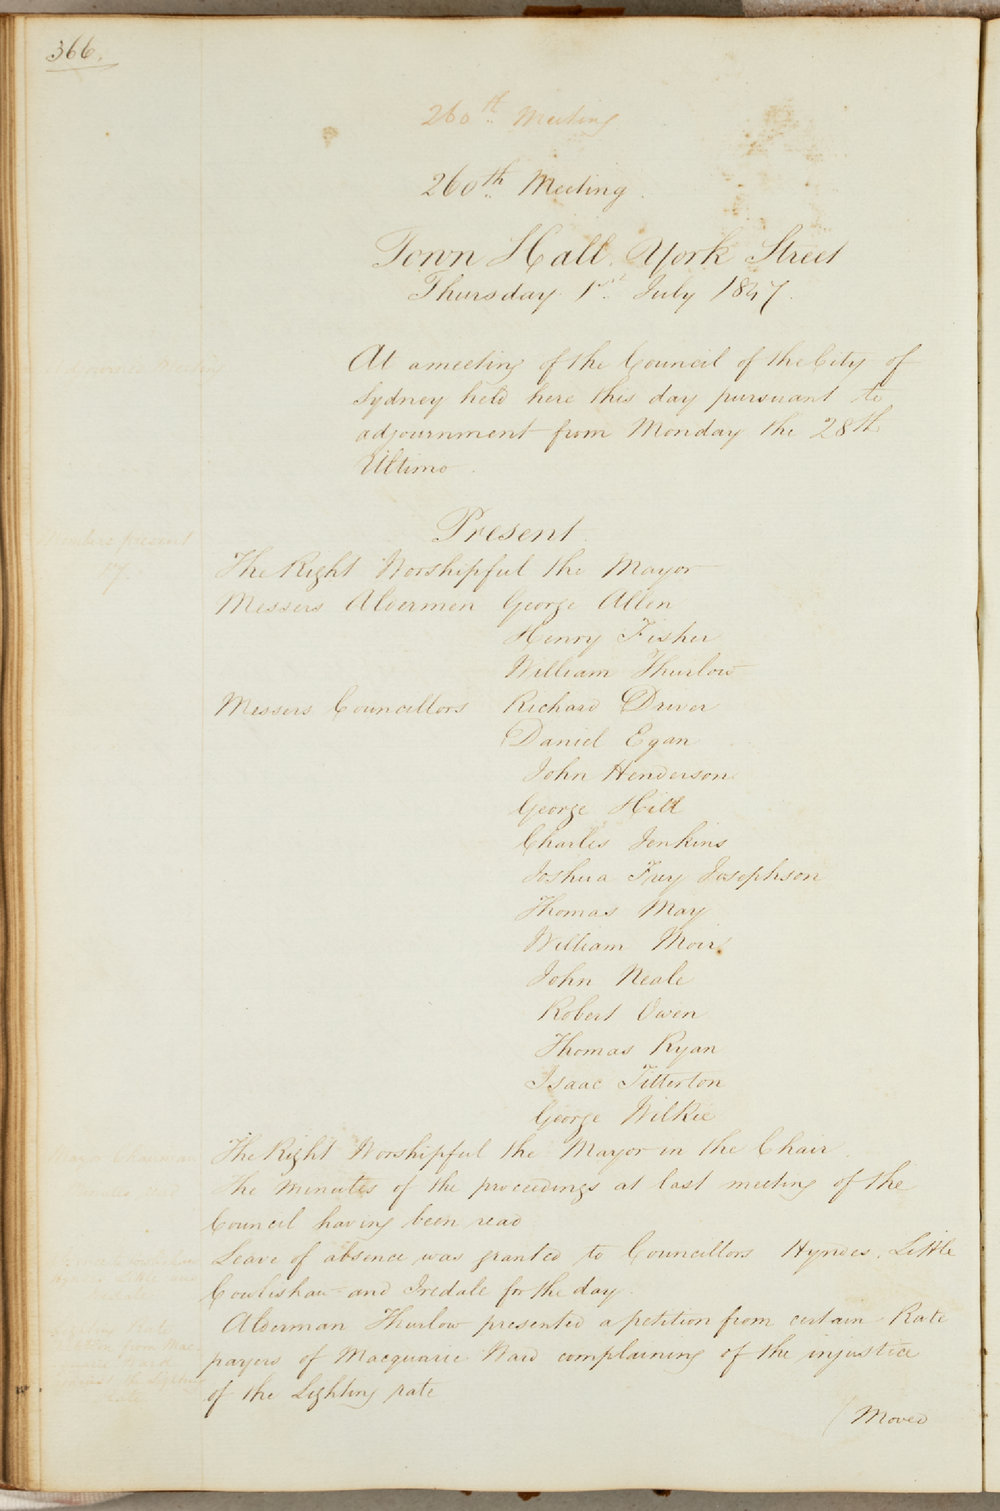 366.
260th Meeting
260th Meeting.
Town Hall. York Street
Thursday 1st July 1847.
At a meeting of the Council of the City of
Sydney held here this day pursuant to
adjournment from Monday the 28th
Ultimo.
Present
Members present
17.
The Right Worshipful the Mayor
Messers Aldermen George Allen
Henry Fisher
William Thurlow
Messers Councillors Richard Driver
Daniel Egan
John Henderson
George Hill
Charles Jenkins
Joshua Frey Josephson
Thomas May
William Moir
John Neale
Robert Owen
Thomas Ryan
Isaac Titterton
George Wilkie
Mayor Chairman
The Right Worshipful the Mayor in the Chair.
Minutes read
The Minutes of the proceedings at last meeting of the
Council having been read
Leave of absence was granted to Councillors Hyndes, Little
Cowlishaw and Iredale for the day.
Alderman Thurlow presented a petition from certain Rate
payers of Macquarie Ward complaining of the injustice
of the Lighting rate
(Moved